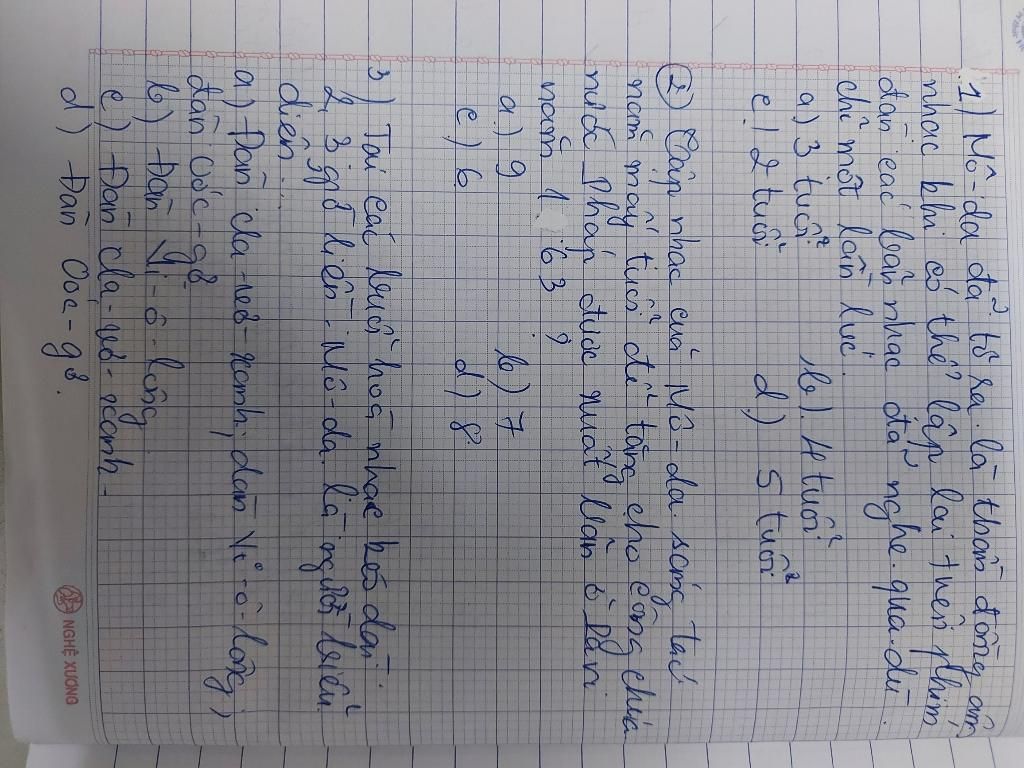 1) Mô-da đã tỏ ra là thần đồng âm
nhạc khi có thể lặp lại trên phím
đàn các bản nhạc đã nghe qua dù
chỉ một lần lúc.
a) 3 tuổi b) 4 tuổi
c) 2 tuổi d) 5 tuổi
2) Tập nhạc của Mô-da sáng tác
năm mấy tuổi để tặng cho công chúa
nước Pháp được xuất bản ở Pari
năm 1 63 ?
a) 9 b) 7
c) 6 d) 8
3) Tại các buổi hoà nhạc kéo dài
2, 3 giờ liền, Mô-da là người biểu
diễn...
a) Đàn cla-vơ-xanh, đàn Vi-ô-lông,
đàn Oóc-gơ
b) Đàn Vi-ô-lông
c) Đàn cla-vơ-xanh.
d) Đàn Ooc-gơ.
NGHỆ XƯƠNG